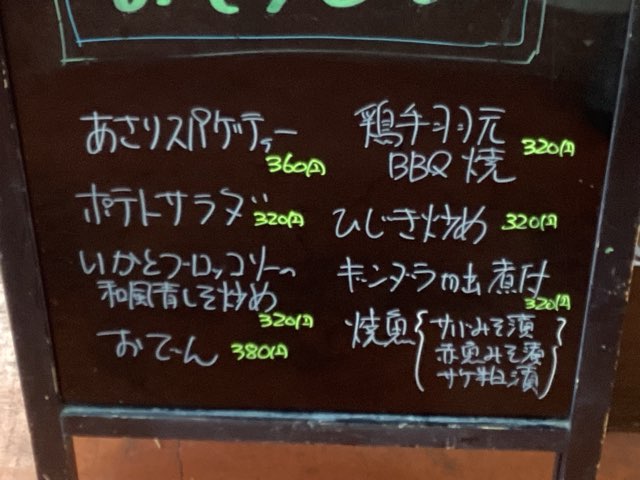 あさりスパゲティー
360円
ポテトサラダ 320円
いかとブロッコリーの
和風青しそ炒め
320円
おでん 380円
鶏手羽元
BBQ 焼 320円
ひじき炒め 320円
ギンダラの出煮付
320円
焼魚 サバみそ漬
赤魚みそ漬
サケ粕漬